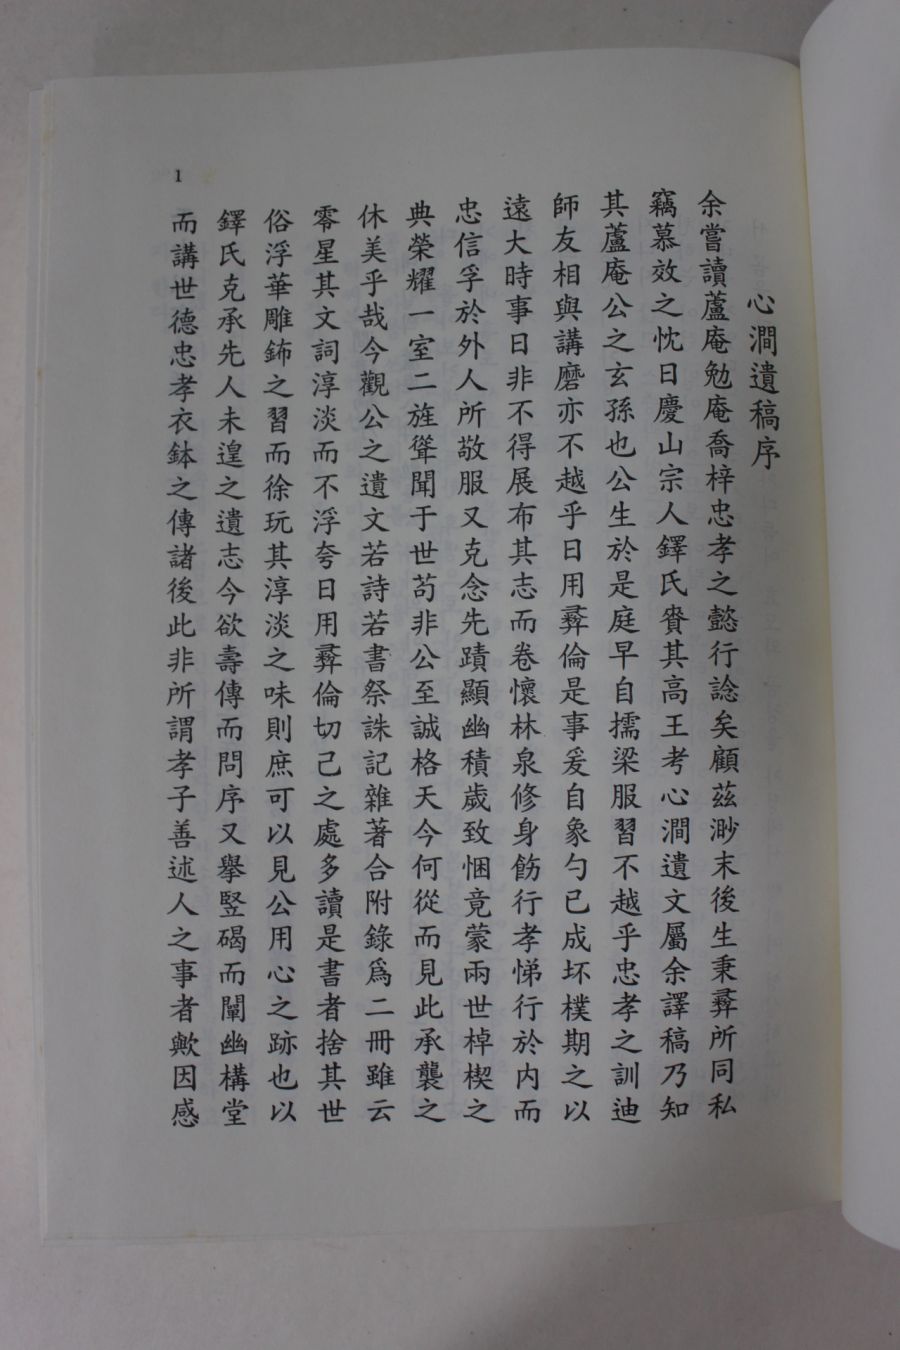 心澗遺稿序
余嘗讀蘆庵勉庵喬梓忠孝之懿行諗矣顧茲渺末後生秉彛所同私
竊慕效之忱日慶山宗人鐸氏賫其高王考心澗遺文屬余譯稿乃知
其蘆庵公之玄孫也公生於是庭早自擩梁服習不越乎忠孝之訓迪
師友相與講磨亦不越乎日用彛倫是事爰自象勺已成坏樸期之以
遠大時事日非不得展布其志而卷懷林泉修身飭行孝悌行於内而
忠信孚於外人所敬服又克念先蹟顯幽積歲致悃竟蒙兩世棹楔之
典榮耀一室二旌聳聞于世苟非公至誠格天今何從而見此承襲之
休美乎哉今觀公之遺文若詩若書祭誄記雜著合附錄爲二冊雖云
零星其文詞淳淡而不浮夸日用彛倫切己之處多讀是書者捨其世
俗浮華雕鈽之習而徐玩其淳淡之味則庶可以見公用心之跡也以
鐸氏克承先人未遑之遺志今欲壽傳而問序又擧竪碣而闡幽構堂
而講世德忠孝衣鉢之傳諸後此非所謂孝子善述人之事者歟因感
1